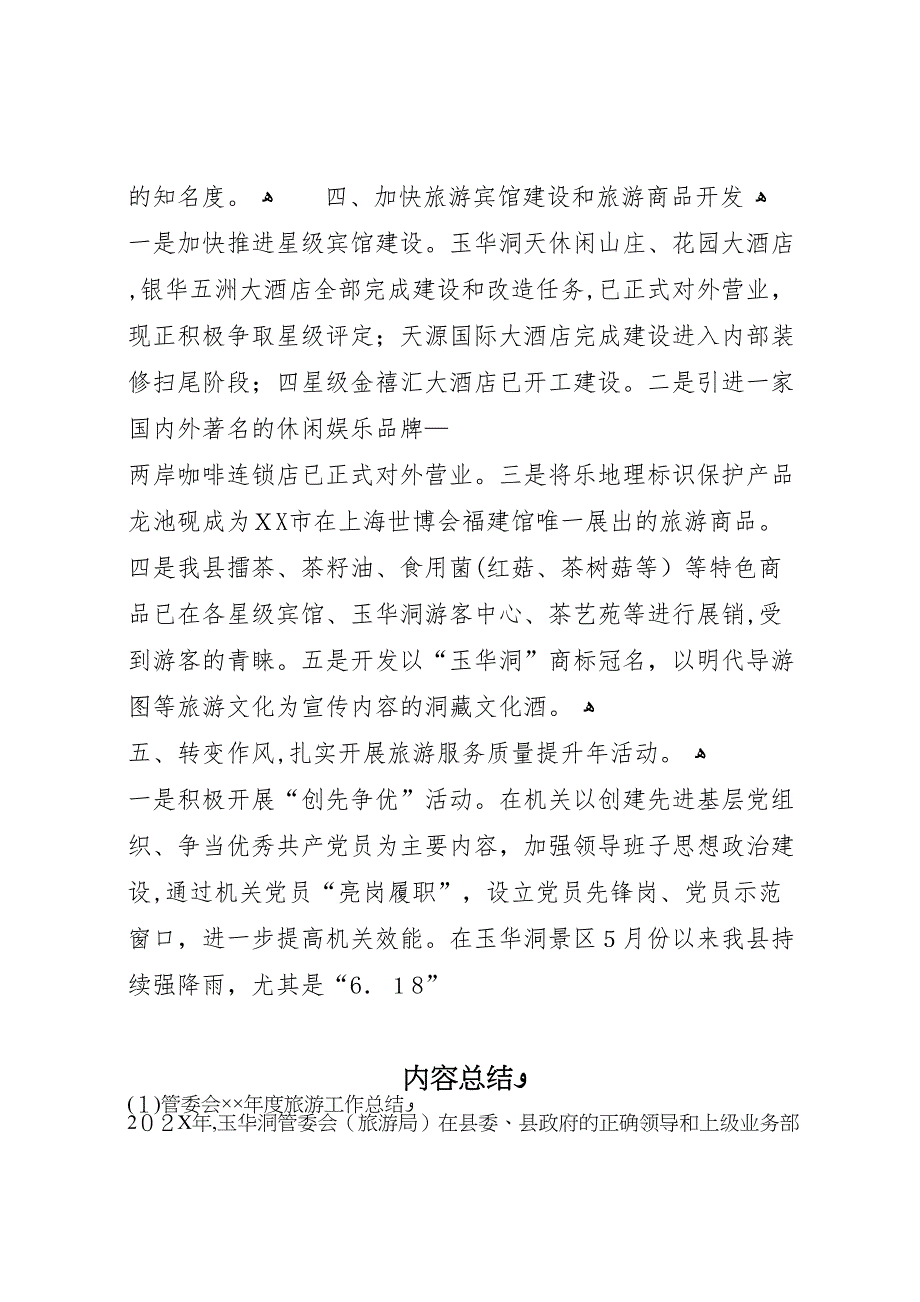 的知名度。ﻫ　　四、加快旅游宾馆建设和旅游商品开发ﻫ
一是加快推进星级宾馆建设。玉华洞天休闲山庄、花园大酒店
,银华五洲大酒店全部完成建设和改造任务,已正式对外营业，
现正积极争取星级评定；天源国际大酒店完成建设进入内部装
修扫尾阶段；四星级金禧汇大酒店已开工建设。二是引进一家
国内外著名的休闲娱乐品牌—
两岸咖啡连锁店已正式对外营业。三是将乐地理标识保护产品
龙池砚成为XX市在上海世博会福建馆唯一展出的旅游商品。
四是我县擂茶、茶籽油、食用菌(红菇、茶树菇等）等特色商
品已在各星级宾馆、玉华洞游客中心、茶艺苑等进行展销,受
到游客的青睐。五是开发以“玉华洞”商标冠名，以明代导游
图等旅游文化为宣传内容的洞藏文化酒。ﻫ
五、转变作风,扎实开展旅游服务质量提升年活动。ﻫ
一是积极开展“创先争优”活动。在机关以创建先进基层党组
织、争当优秀共产党员为主要内容，加强领导班子思想政治建
设,通过机关党员“亮岗履职”，设立党员先锋岗、党员示范
窗口，进一步提高机关效能。在玉华洞景区５月份以来我县持
续强降雨，尤其是“6．１8”
内容总结ﻭ
(１)管委会××年度旅游工作总结ﻭ
2０２X年,玉华洞管委会（旅游局）在县委、县政府的正确领导和上级业务部